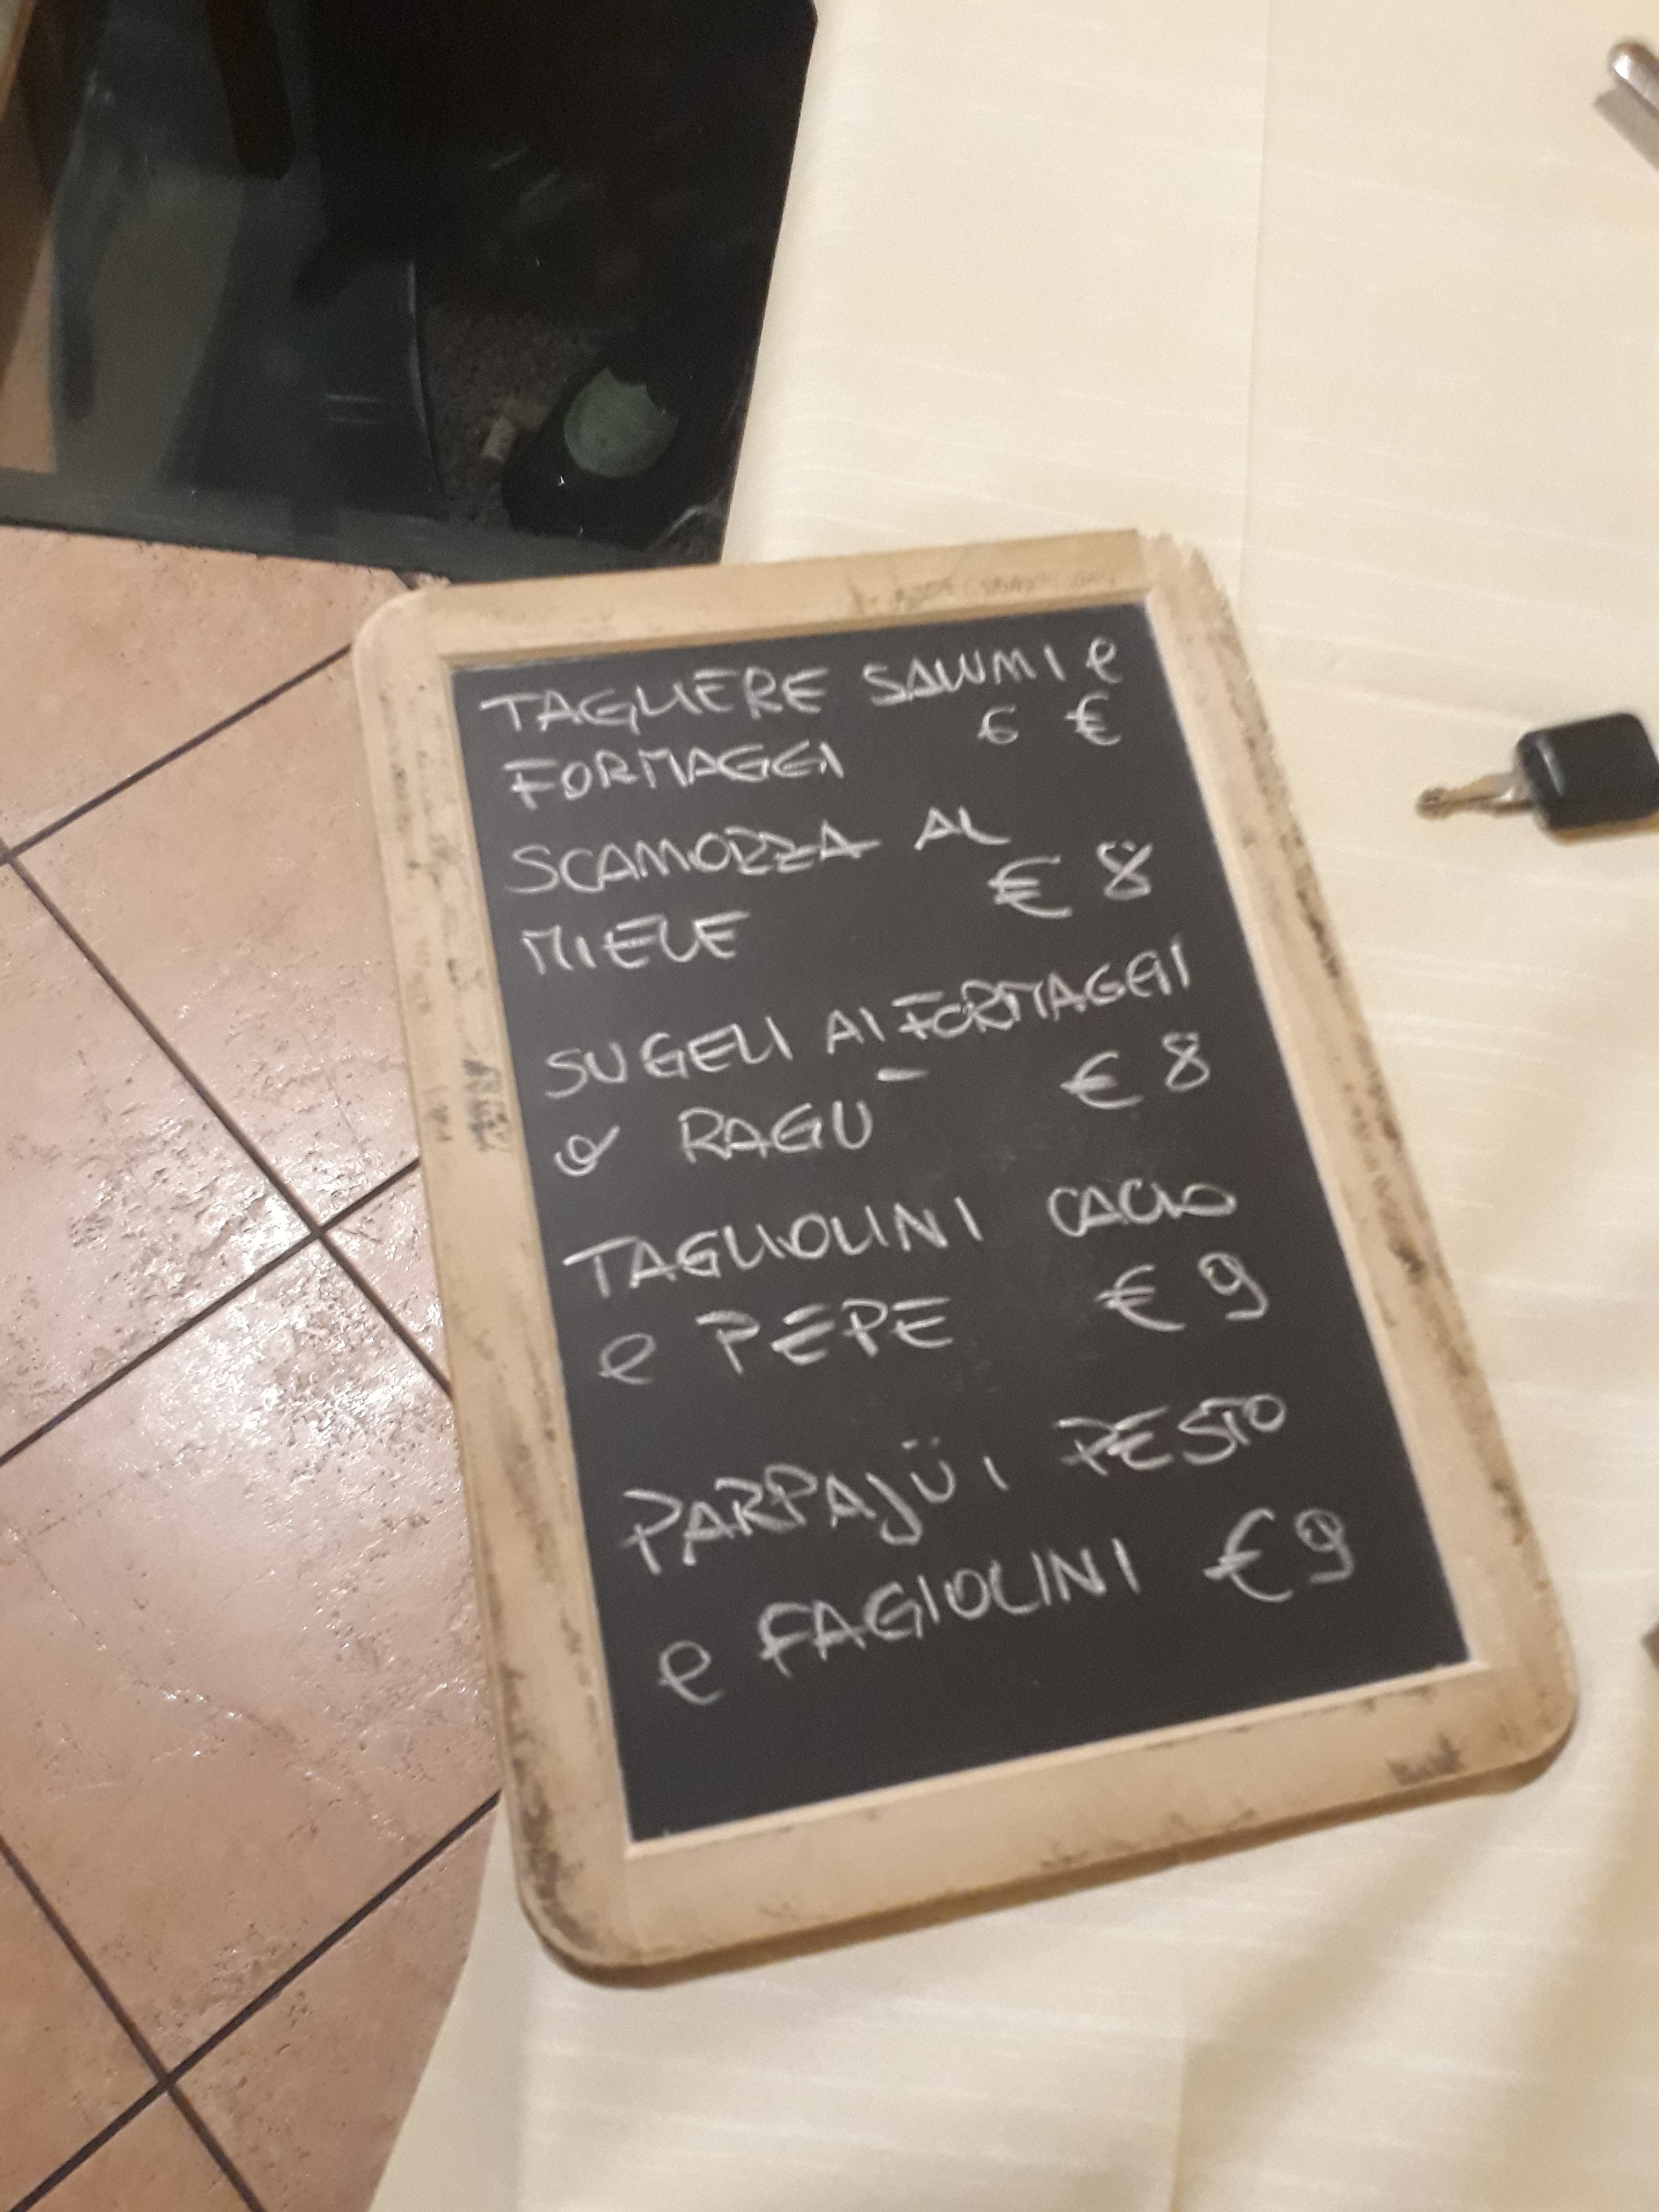 TAGLIERE SALUMI e
FORMAGGI 6 €
SCAMORZA AL
MIELE € 8
SUGELI AI FORMAGGI
o RAGU € 8
TAGLIOLINI CACIO
e PEPE € 9
PARPAJÜI PESTO
e FAGIOLINI € 9